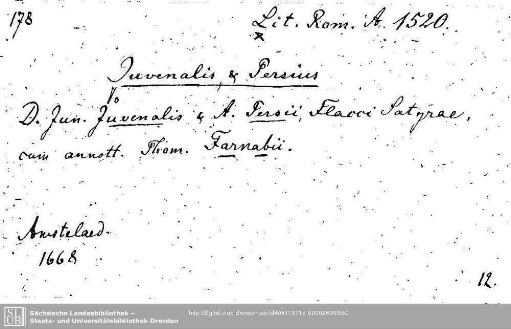 178
Lit. Rom. A. 1520.
Juvenalis, & Persius
D. Jun. Juvenalis & A. Persii, Flacci Satyrae,
cum annott. Thom. Farnabii.
Amstelaed.
1668
12.
Sächsische Landesbibliothek –
Staats- und Universitätsbibliothek Dresden